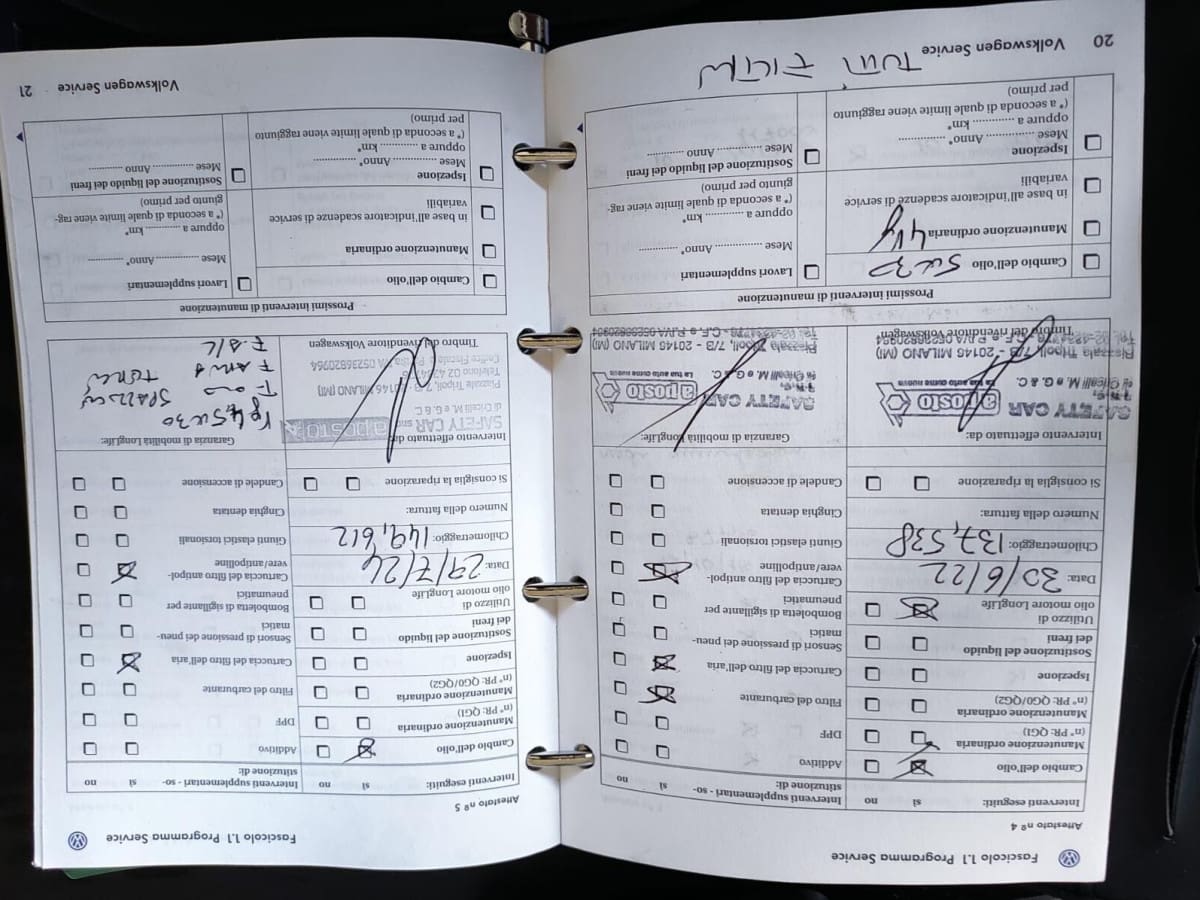 Fascicolo 1.1 Programma Service
Attestato nº 4
Interventi eseguiti: sì no
Cambio dell'olio
Manutenzione ordinaria
(nº PR: QG1)
Manutenzione ordinaria
(nº PR: QG0/QG2)
Ispezione
Sostituzione del liquido
dei freni
Utilizzo di
olio motore LongLife
Data: 30/6/22
Chilometraggio: 137,538
Numero della fattura:
Si consiglia la riparazione
Interventi supplementari - so-
stituzione di: sì no
Additivo
DPF
Filtro del carburante
Cartuccia del filtro dell'aria
Sensori di pressione dei pneu-
matici
Bomboletta di sigillante per
pneumatici
Cartuccia del filtro antipol-
vere/antipolline
Giunti elastici torsionali
Cinghia dentata
Candele di accensione
Intervento effettuato da:
SAFETY CAR
di Cricelli M. e G. & C.
aposto
La tua auto come nuova
Piazzale Tripoli, 7/3 - 20146 MILANO (MI)
Timbro del rivenditore Volkswagen
Garanzia di mobilità LongLife:
SAFETY CAR
di Cricelli M. e G. & C.
aposto
La tua auto come nuova
Piazzale Tripoli, 7/3 - 20146 MILANO (MI)
Prossimi interventi di manutenzione
Cambio dell'olio 5w30
Manutenzione ordinaria
in base all'indicatore scadenze di service
variabili
Ispezione
Mese ............... Anno* ...............
oppure a ............ km*
(* a seconda di quale limite viene raggiunto
per primo)
Lavori supplementari
Mese ............... Anno* ............
oppure a ............ km*
(* a seconda di quale limite viene rag-
giunto per primo)
Sostituzione del liquido dei freni
Mese ............... Anno ............
20 Volkswagen Service
TUTTI FILTRI
Fascicolo 1.1 Programma Service
Attestato nº 5
Interventi eseguiti: sì no
Cambio dell'olio
Manutenzione ordinaria
(nº PR: QG1)
Manutenzione ordinaria
(nº PR: QG0/QG2)
Ispezione
Sostituzione del liquido
dei freni
Utilizzo di
olio motore LongLife
Data: 29/7/24
Chilometraggio: 149,612
Numero della fattura:
Si consiglia la riparazione
Interventi supplementari - so-
stituzione di: sì no
Additivo
DPF
Filtro del carburante
Cartuccia del filtro dell'aria
Sensori di pressione dei pneu-
matici
Bomboletta di sigillante per
pneumatici
Cartuccia del filtro antipol-
vere/antipolline
Giunti elastici torsionali
Cinghia dentata
Candele di accensione
Intervento effettuato da:
SAFETY CAR
di Cricelli M. e G. & C.
aposto
Piazzale Tripoli, 7/3 - 20146 MILANO (MI)
Timbro del rivenditore Volkswagen
Garanzia di mobilità LongLife:
5w30
Prossimi interventi di manutenzione
Cambio dell'olio
Manutenzione ordinaria
in base all'indicatore scadenze di service
variabili
Ispezione
Mese ............... Anno* ...............
oppure a ............ km*
(* a seconda di quale limite viene raggiunto
per primo)
Lavori supplementari
Mese ............... Anno* ............
oppure a ............ km*
(* a seconda di quale limite viene rag-
giunto per primo)
Sostituzione del liquido dei freni
Mese ............... Anno ............
Volkswagen Service 21